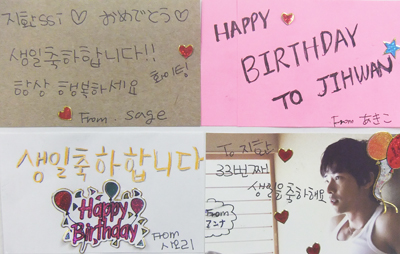 지환SSI ♡ おめでとう♡
생일축하합니다!!
항상 행복하세요 화이팅!
From sage
HAPPY
BIRTHDAY
TO JIHWAN
From あきこ
생일축하합니다
Happy
Birthday
From 시오리
To 지환
33번째
생일을 축하해요
From